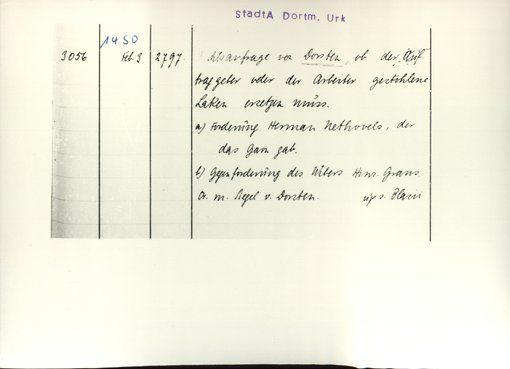 StadtA Dortm. Urk
1450
3056 Feb. 3 2797. Ratsanfrage von Dorsten, ob der Auf-
traggeber oder der Arbeiter gestohlene
Laken ersetzen muss.
a) Forderung Herman Nethovels, der
das Garn gab.
b) Gegenforderung des Webers Hins. Graus
Or. m. Siegel v. Dorsten.